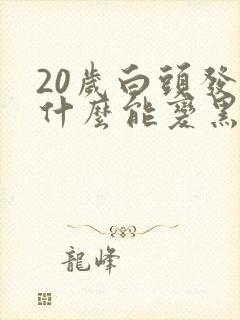 20歲白頭發
什麼能變黑
龍峰